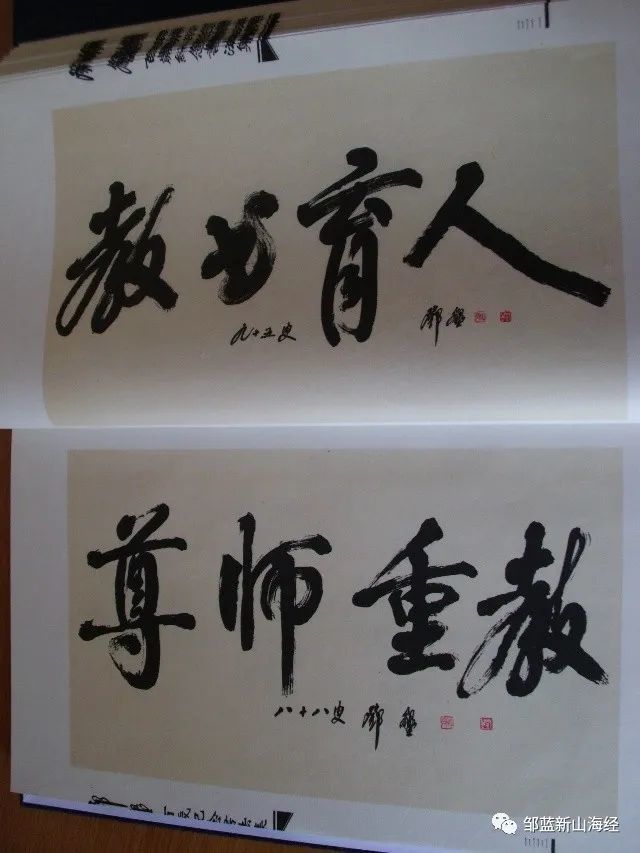 教书育人
九十五叟 鄧墾
尊师重教
八十八叟 鄧墾
邹蓝新山海经